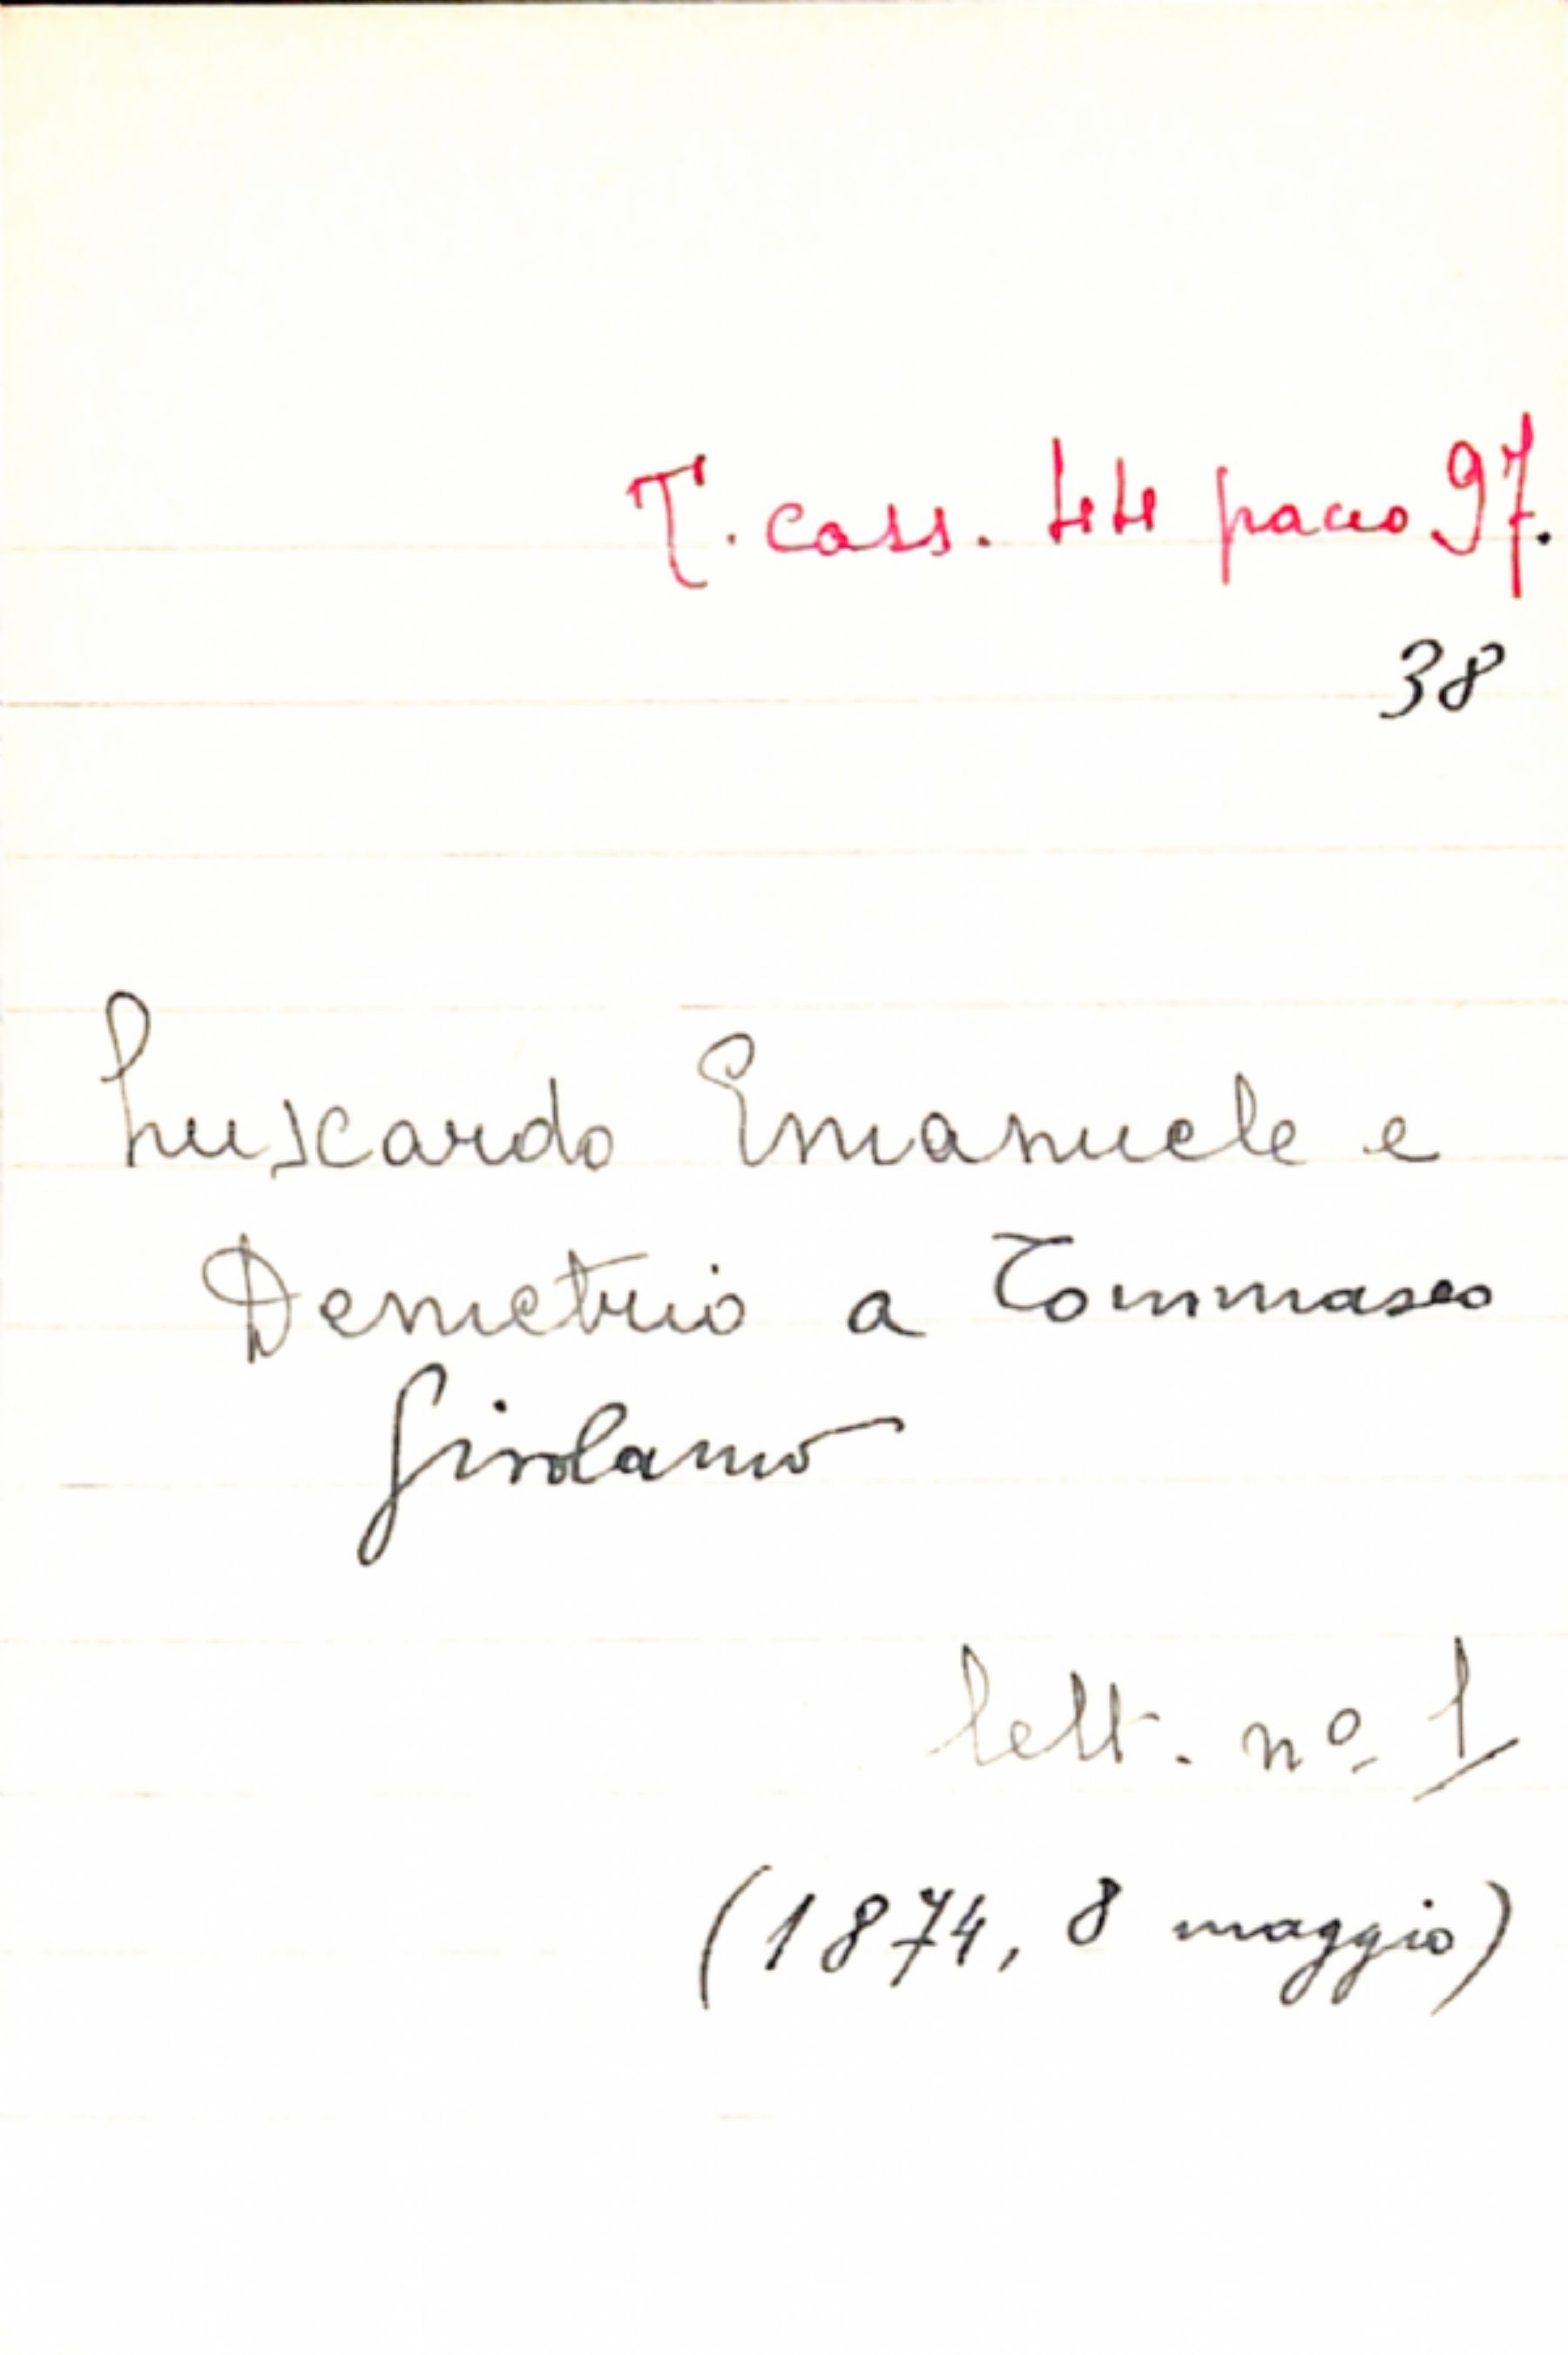 T. cass. 44 pacco 97.
38
Luscardo Emanuele e
Demetrio a Tommaseo
Girolamo
lett. nº 1
(1874, 8 maggio)